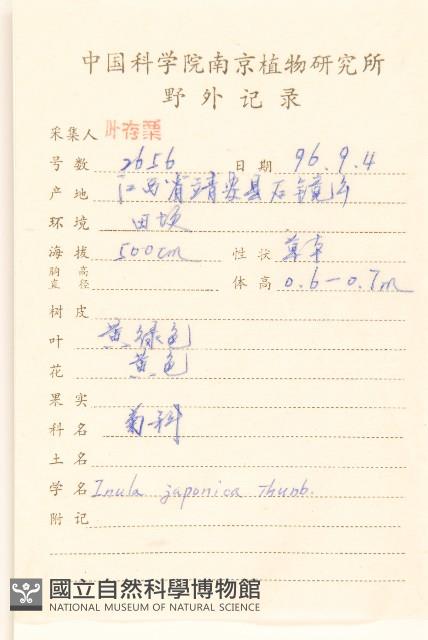 中国科学院南京植物研究所
野外记录
采集人 叶存粟
号数 2656 日期 96.9.4
产地 江西省靖安县石镜山
环境 田埂
海拔 500cm 性状 草本
胸高直径 体高 0.6-0.7m
树皮
叶 黄绿色
花 黄色
果实
科名 菊科
土名
学名 Inula japonica Thunb.
附记
國立自然科學博物館
NATIONAL MUSEUM OF NATURAL SCIENCE